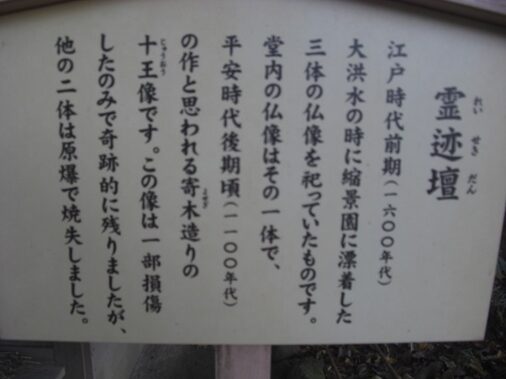 霊迹壇
れいせきだん
江戸時代前期(一六〇〇年代)
大洪水の時に縮景園に漂着した
三体の仏像を祀っていたものです。
堂内の仏像はその一体で、
平安時代後期頃(一一〇〇年代)
の作と思われる寄木造りの
よせぎ
十王像です。この像は一部損傷
じゅうおう
したのみで奇跡的に残りましたが、
他の二体は原爆で焼失しました。